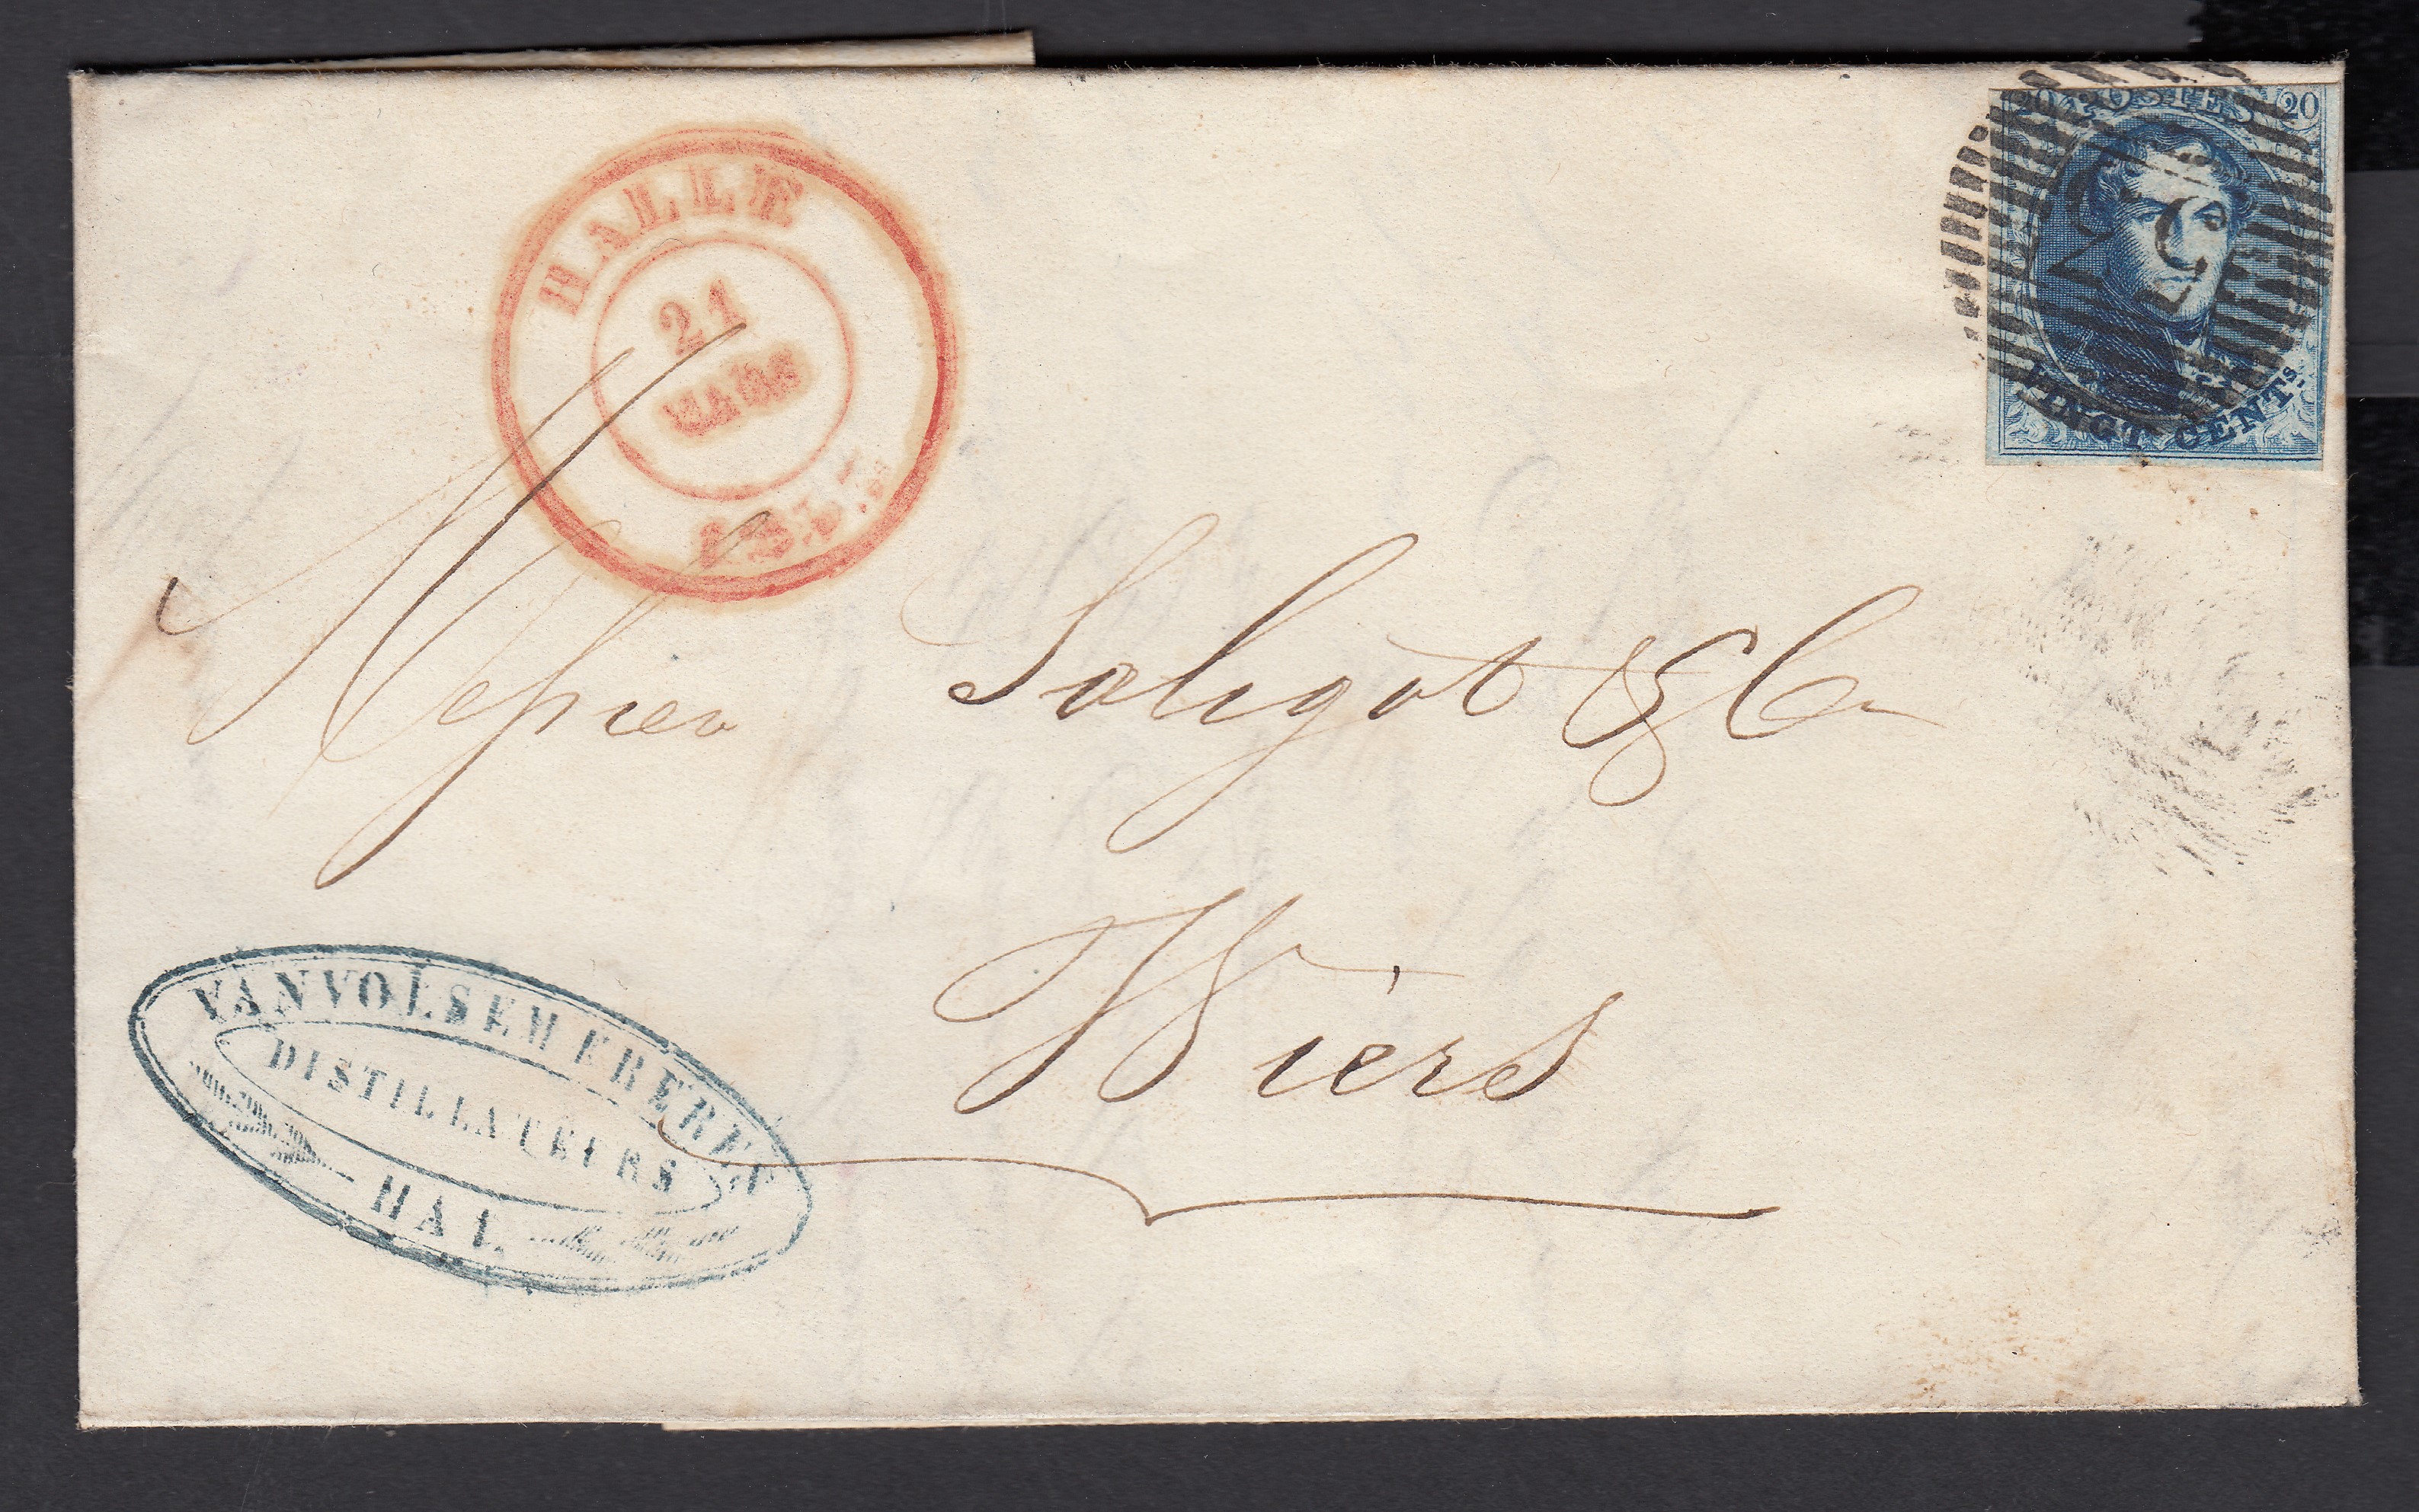 HALLE
21
MARS
20 POSTES 20
VINGT CENTS.
Messieu Soligot & Cie
Wiers
VANVOLSEM FRERES
DISTILLATEURS
HAL